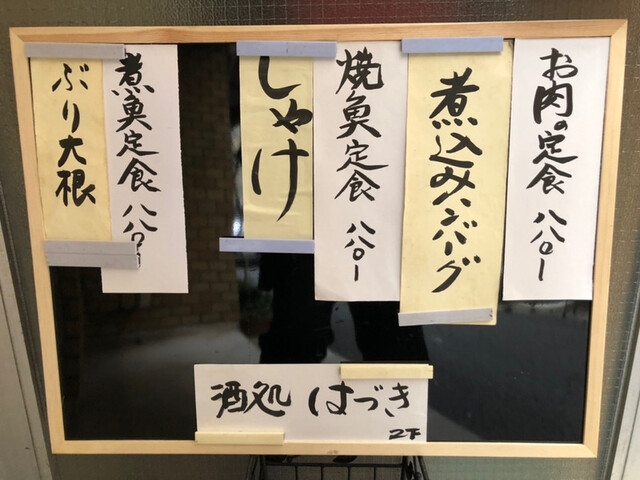 お肉の定食 八八〇ー
煮込みハンバーグ
焼魚定食 八八〇ー
しゃけ
煮魚定食 八八〇ー
ぶり大根
酒処 はづき
2F